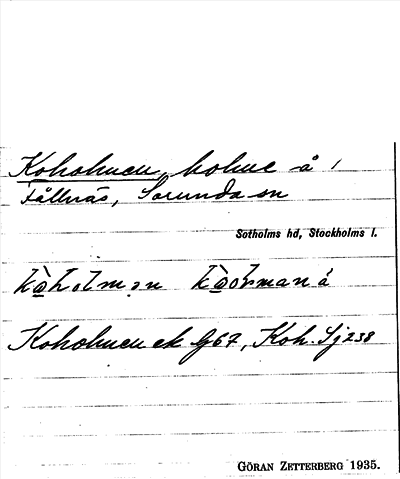 Koholmen, holme å
Fållnäs, Sorunda sn
Sotholms hd, Stockholms l.
Koholmen ek G67, Koh. Sj 238
GÖRAN ZETTERBERG 1935.